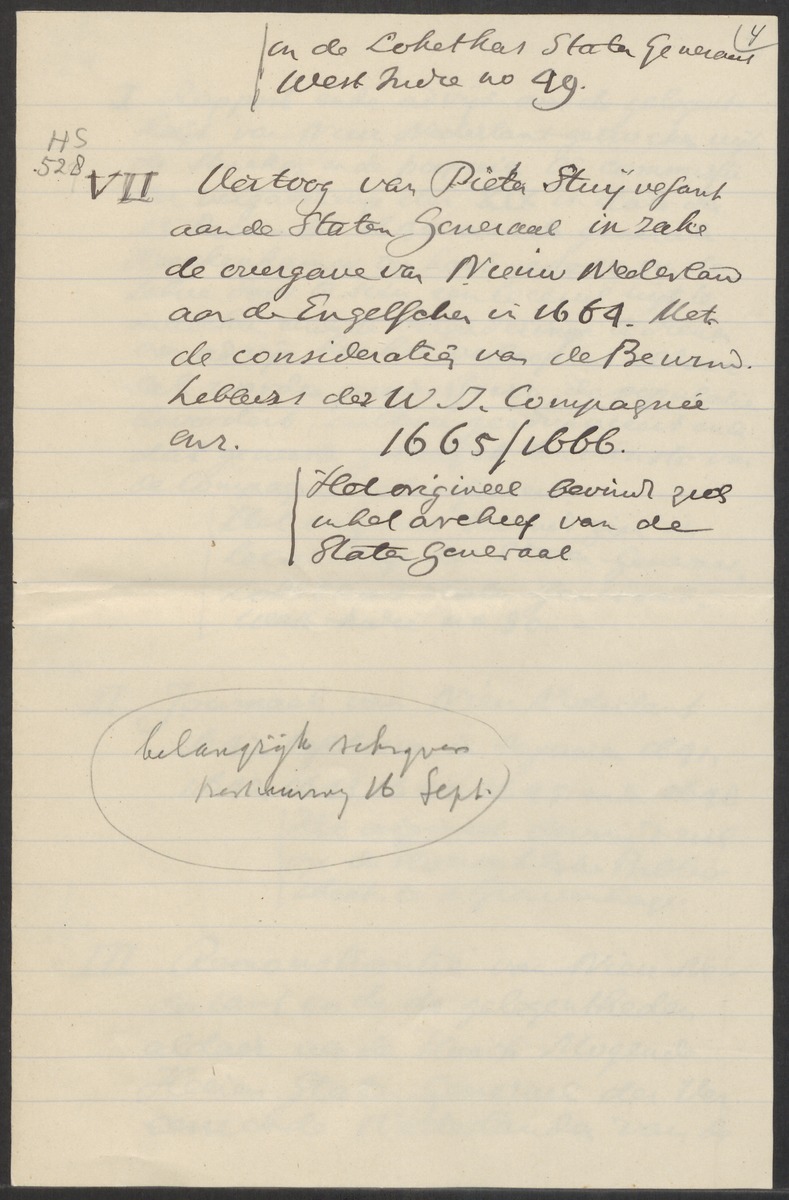 4
in de Loketkas Staten Generaal
West Indie no 49.
HS
528
VII Vertoog van Pieter Stuijvesant
aan de Staten Generaal in zake
de overgave van Nieuw Nederland
aan de Engelschen in 1664. Met
de consideratiën van de Bewind.
hebbers der W. I. Compagnie
enz. 1665/1666.
Het origineel bevindt zich
in het archief van de
Staten Generaal
belangrijk schrijven
16 Sept.